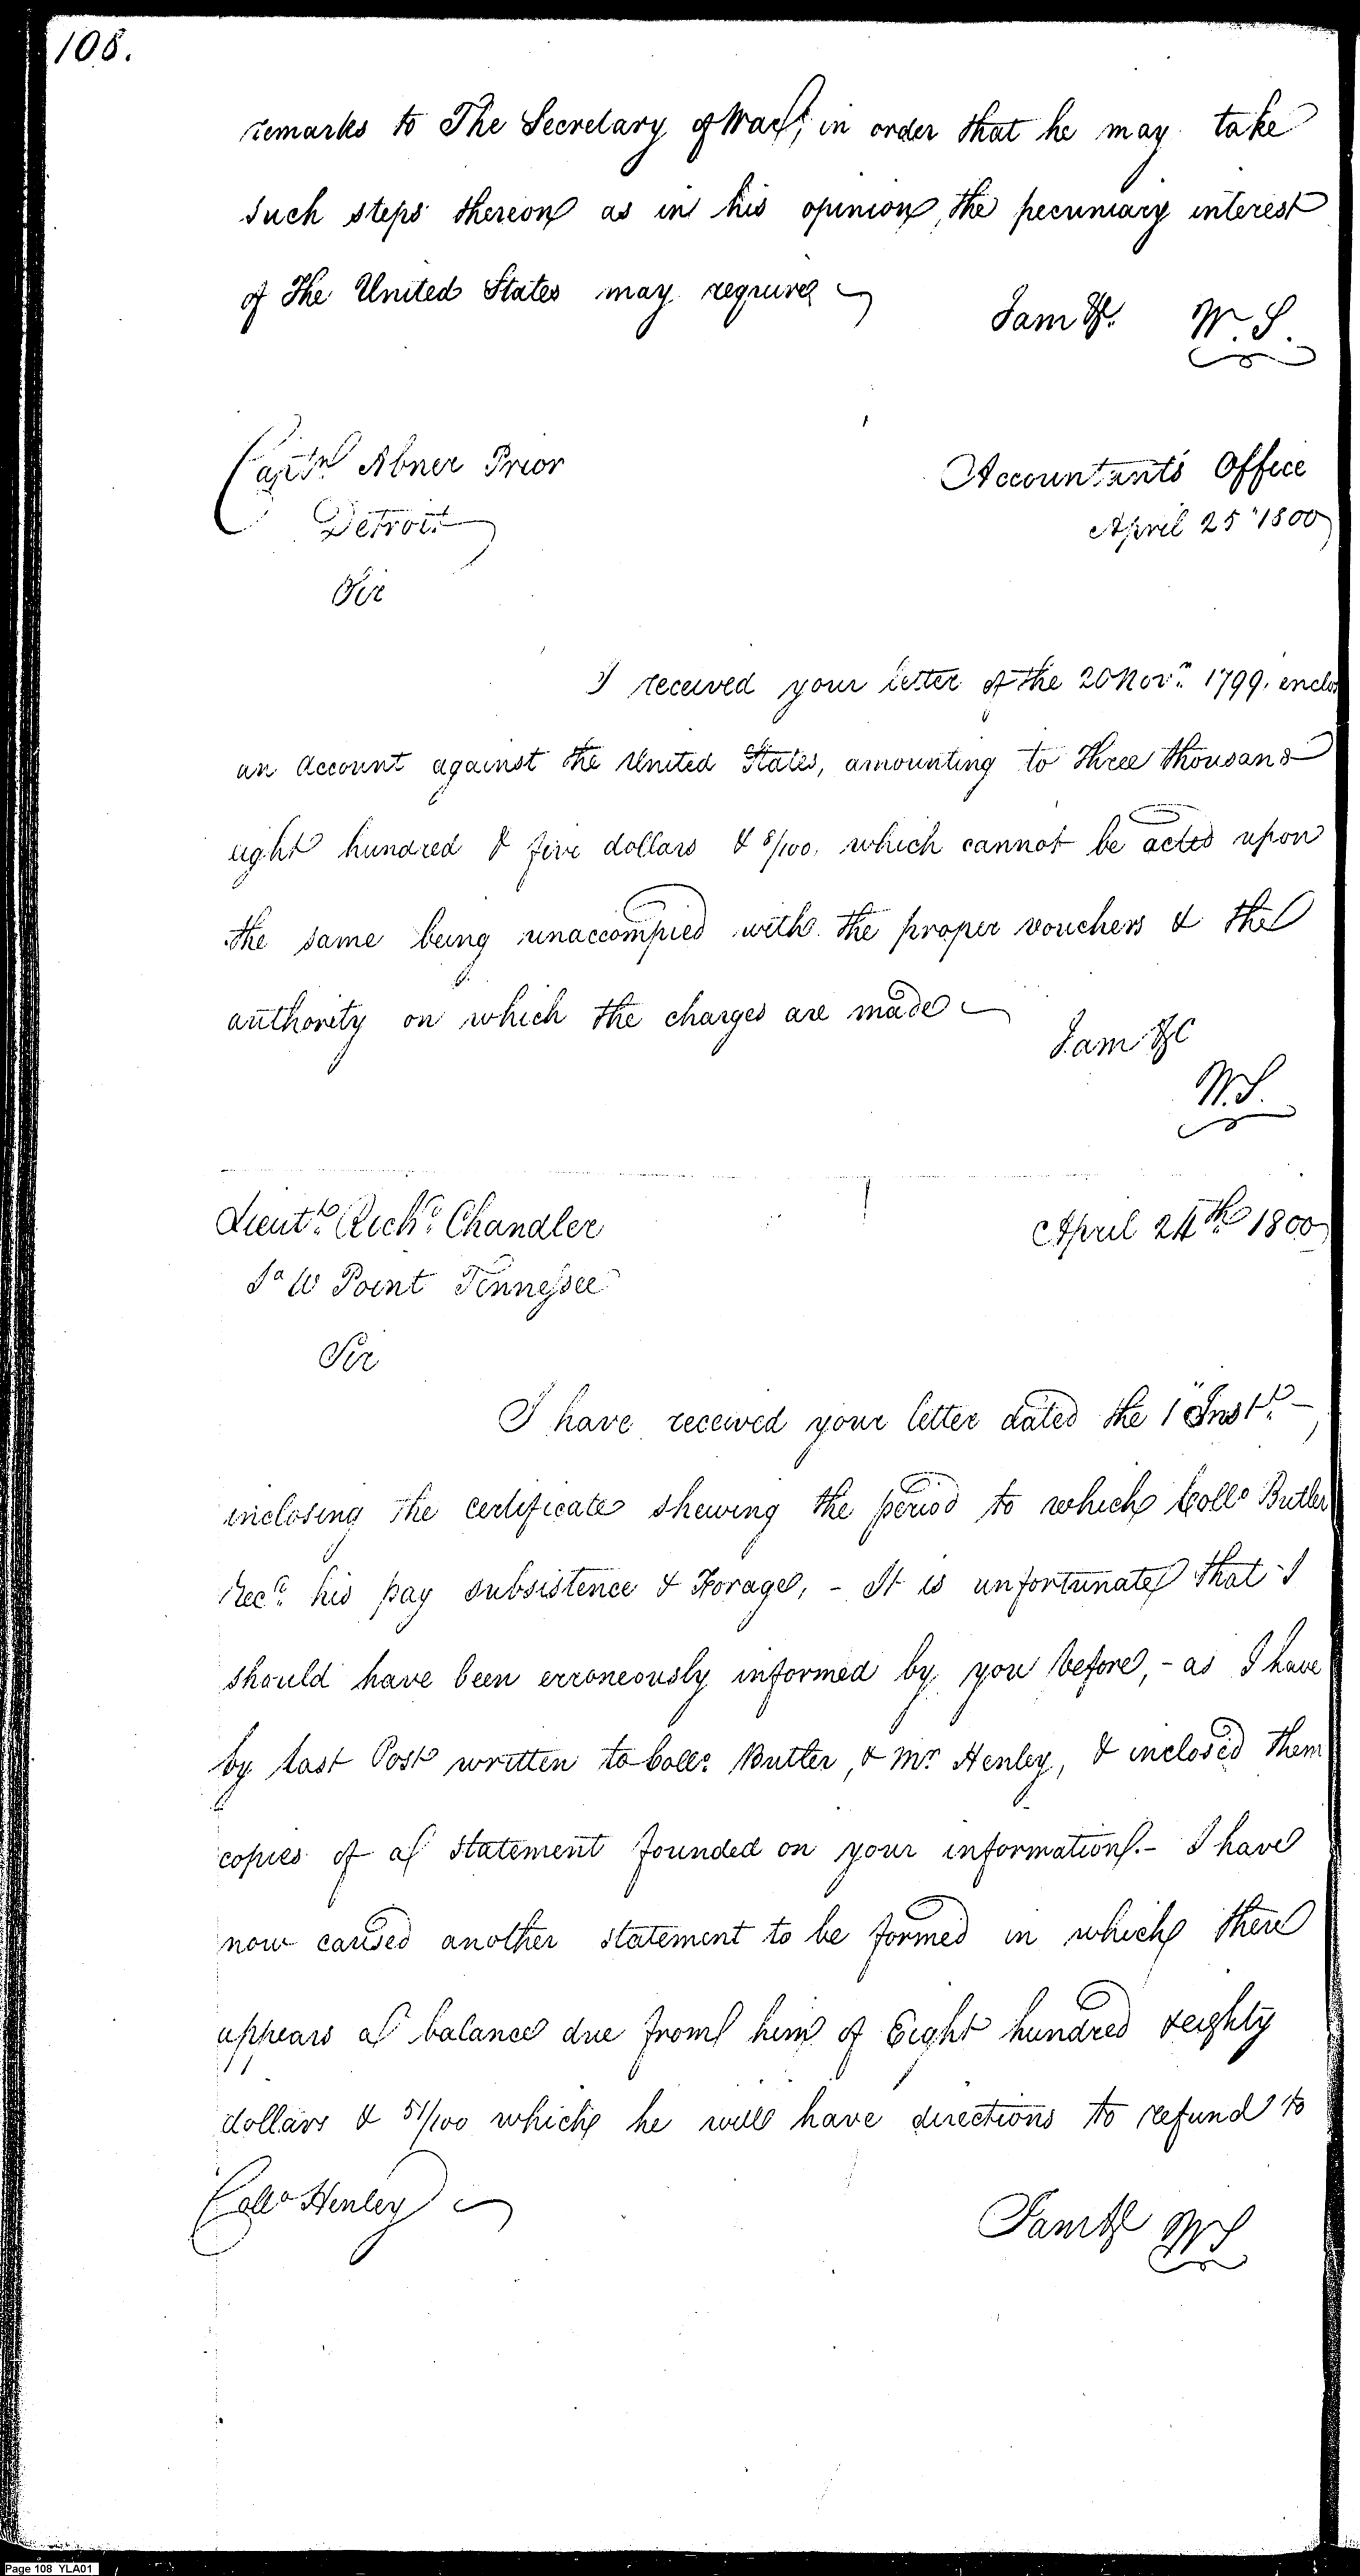 108.
remarks to The Secretary of War, in order that he may take
such steps thereon as in his opinion, the pecuniary interest
of The United States may require
I am &c. W.S.
Captn Abner Prior
Accountants Office
Detroit
April 25" 1800
Sir
I received your letter of the 20 Novr. 1799, enclos
an account against the United States, amounting to Three thousand
eight hundred & five dollars & 8/100, which cannot be acted upon
the same being unaccompied with the proper vouchers & the
authority on which the charges are made
I am &c
W.S.
Lieutt. Richd. Chandler
April 24th 1800
So W Point Tennessee
Sir
I have received your letter dated the 1" Instt. -
inclosing the certificate shewing the period to which Collo Butler
recd. his pay subsistence & Forage, - It is unfortunate that I
should have been erroneously informed by you before, - as I have
by last Post written to Collo. Butler, & Mr. Henley, & inclosed them
copies of a statement founded on your information. - I have
now caused another statement to be formed in which there
appears a balance due from him of Eight hundred & eighty
dollars & 51/100 which he will have directions to refund to
Collo Henley
I am &c W S
Page 108 YLA01